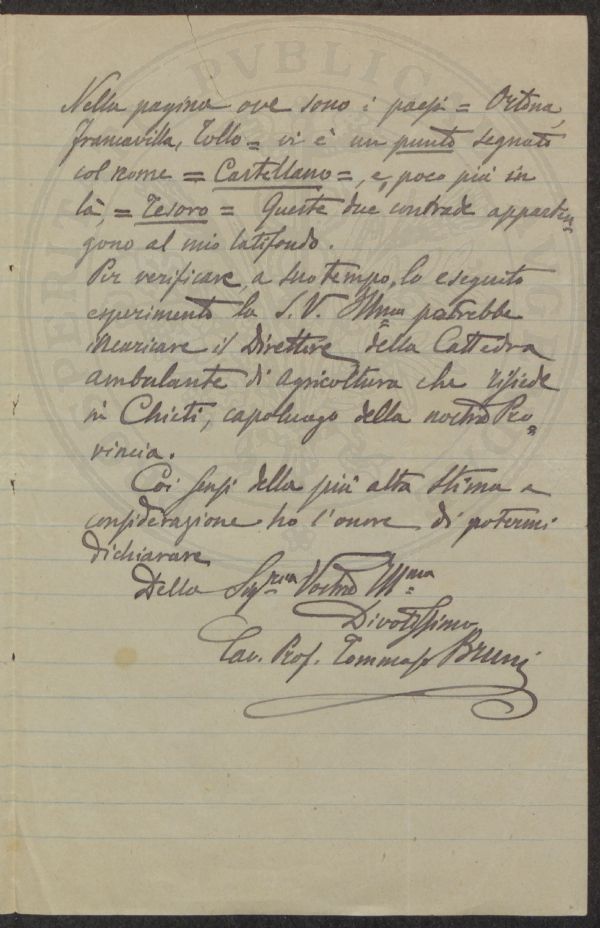 Nella pagina ove sono i paesi = Ortona,
Francavilla, Tollo = vi è un punto segnato
col nome = Castellano =, e, poco più in
là, = Tesoro = Queste due contrade apparten=
gono al mio latifondo.
Per verificare, a suo tempo, lo eseguito
esperimento la S. V. Ill.ma potrebbe
incaricare il Direttore della Cattedra
ambulante di agricoltura che risiede
in Chieti, capoluogo della nostra Pro=
vincia.
Coi sensi della più alta stima e
considerazione ho l'onore di potermi
dichiarare
Della Sig.ria Vostra Ill.ma
Divotissimo
Cav. Prof. Tommaso Bruni